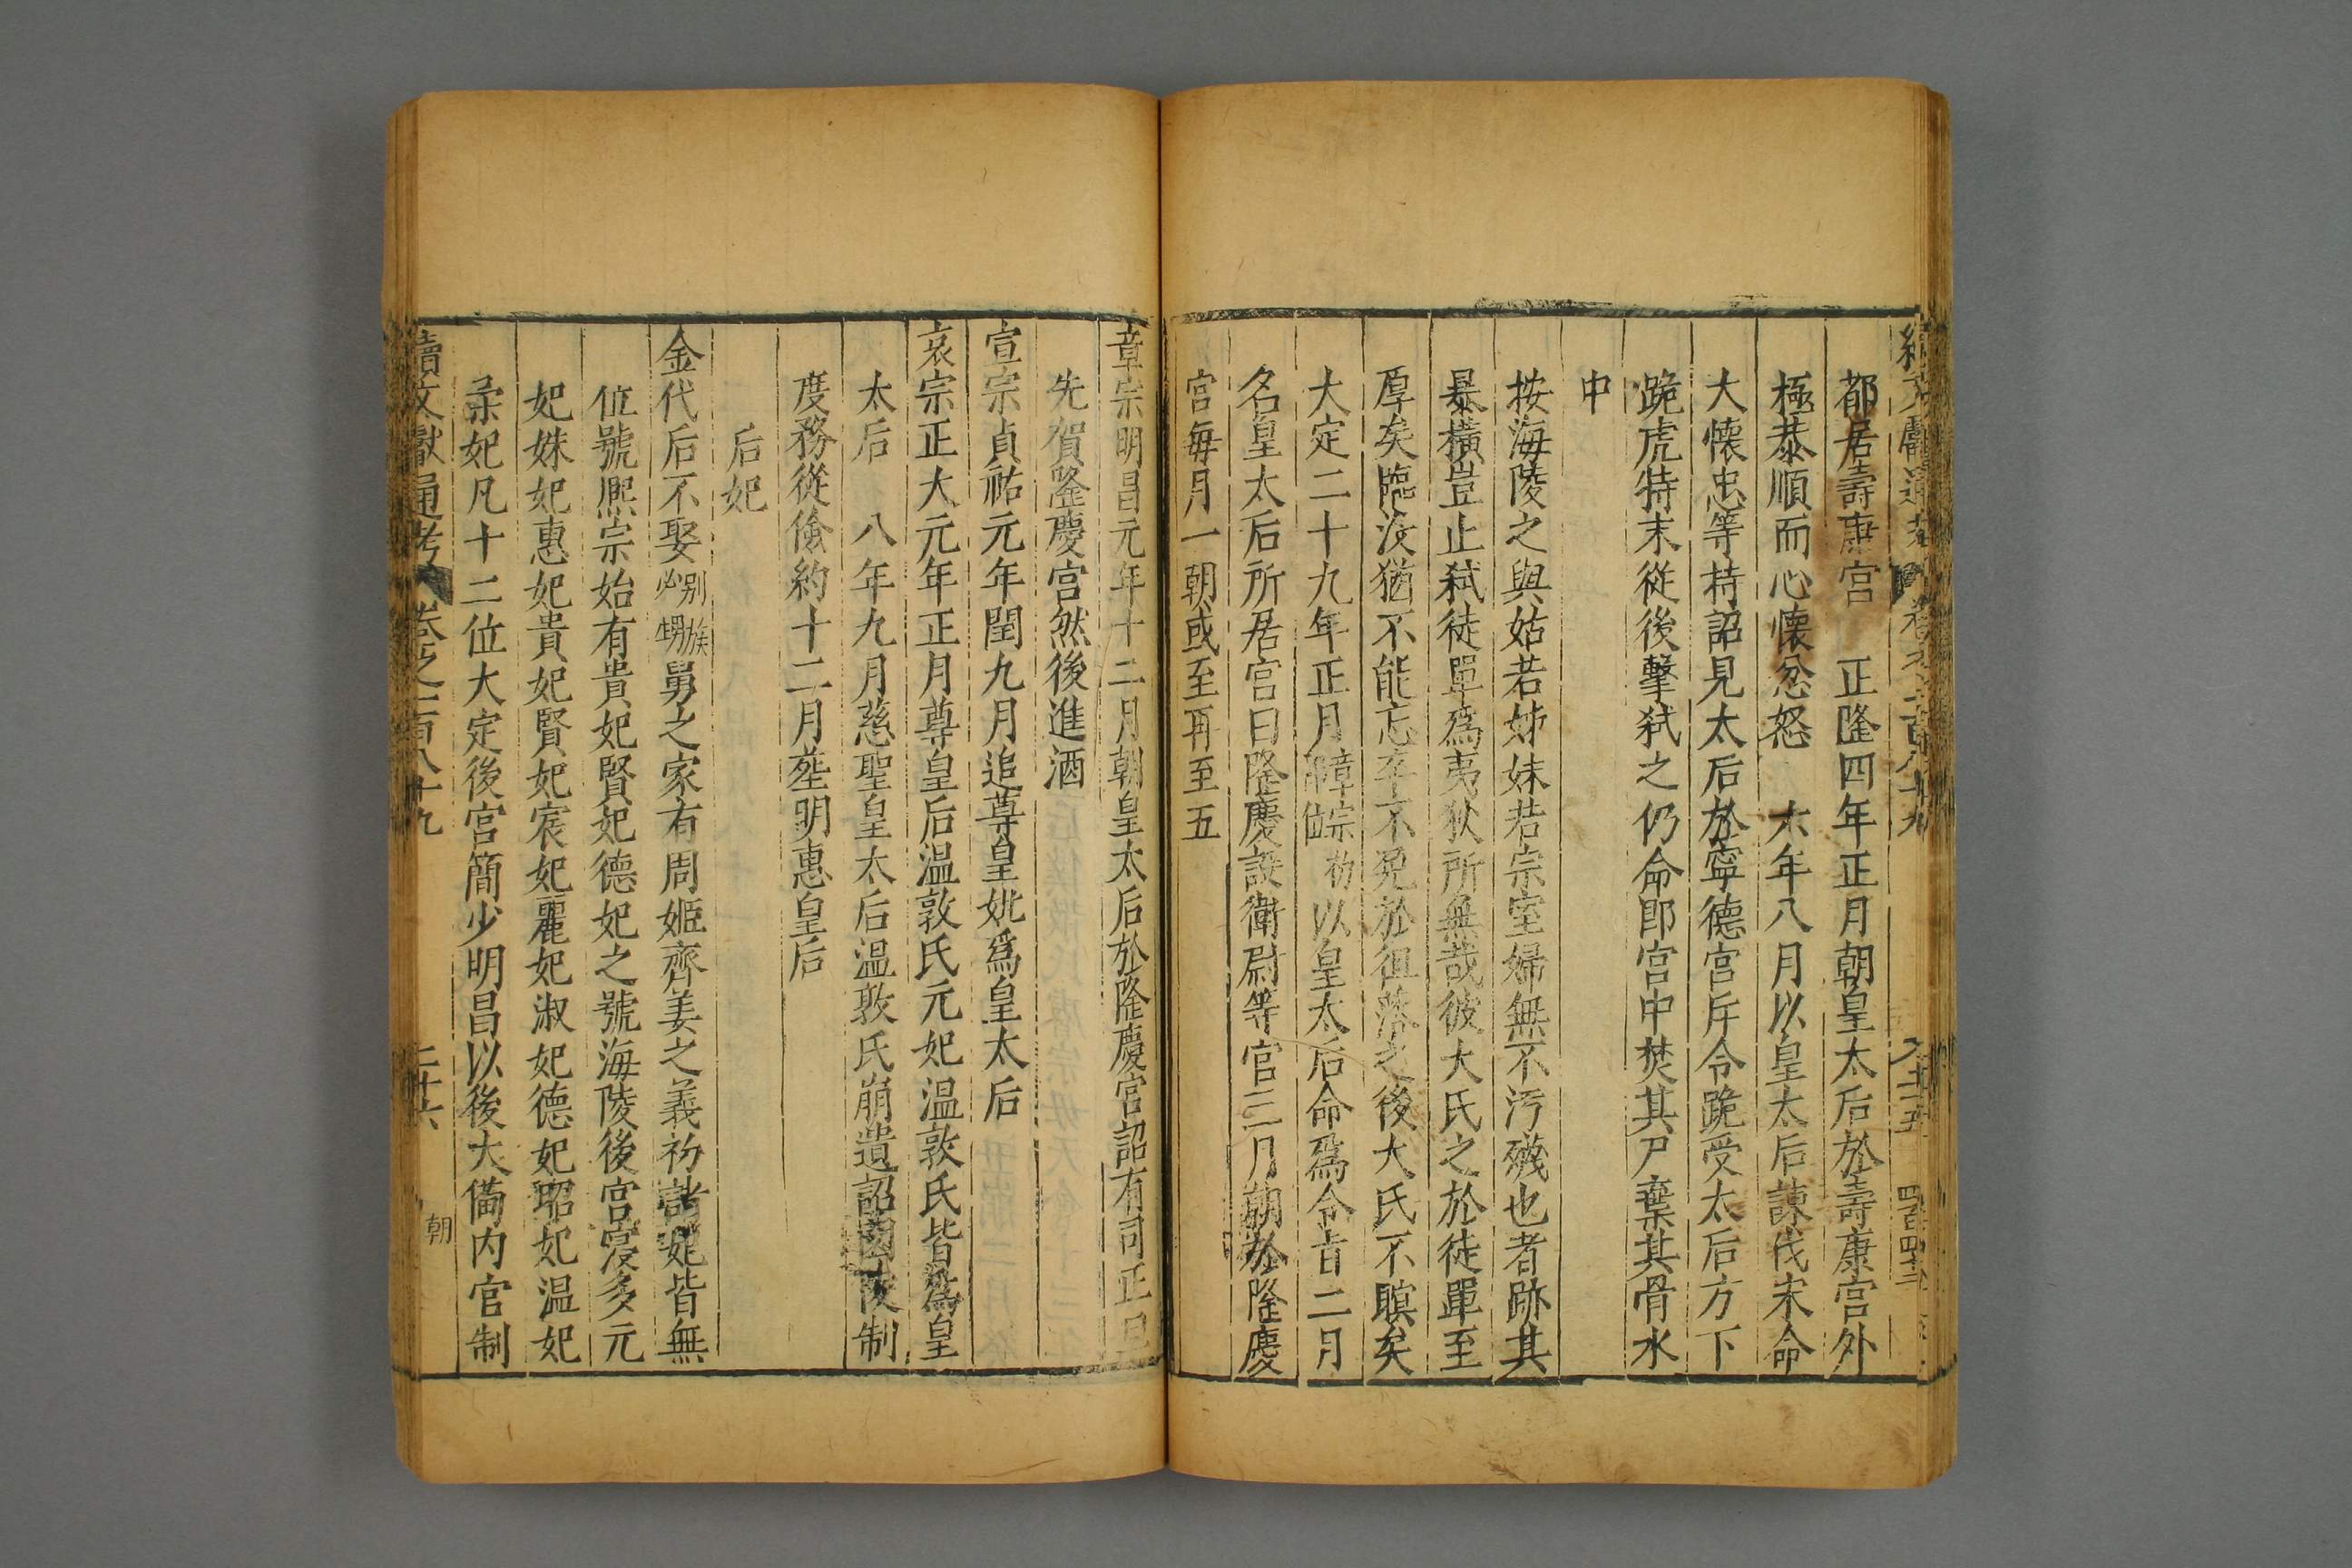 都居壽康宮　正隆四年正月朝皇太后於壽康宮外
極恭順而心懷忿怒　六年八月以皇太后諫伐宋命
大懷忠等持詔見太后於寧德宮斥令跪受太后方下
跪虎特末從後擊弒之仍命即宮中焚其尸棄其骨水
中
按海陵之與姑若姊妹若宗室婦無不污衊也者跡其
暴橫豈止弒徒單爲夷狄所無哉彼大氏之於徒單至
厚矣臨沒猶不能忘卒不免於徂落之後大氏不瞑矣
大定二十九年正月章宗即位初以皇太后命爲令旨二月
名皇太后所居宮曰隆慶設衛尉等官三月朝於隆慶
宮每月一朝或至再至五
章宗明昌元年十二月朝皇太后於隆慶宮詔有司正旦
先賀隆慶宮然後進酒
宣宗貞祐元年閏九月追尊皇妣爲皇太后
哀宗正大元年正月尊皇后溫敦氏元妃溫敦氏皆爲皇
太后　八年九月慈聖皇太后溫敦氏崩遺詔園陵制
度務從儉約十二月葬明惠皇后
后妃
金代后不娶別族必甥舅之家有周姬齊姜之義初諸妃皆無
位號熙宗始有貴妃賢妃德妃之號海陵後宮寖多元
妃姝妃惠妃貴妃賢妃宸妃麗妃淑妃德妃昭妃温妃
柔妃凡十二位大定後宮簡少明昌以後大備内官制
續文獻通考　卷之一百八十九　二十六　朝